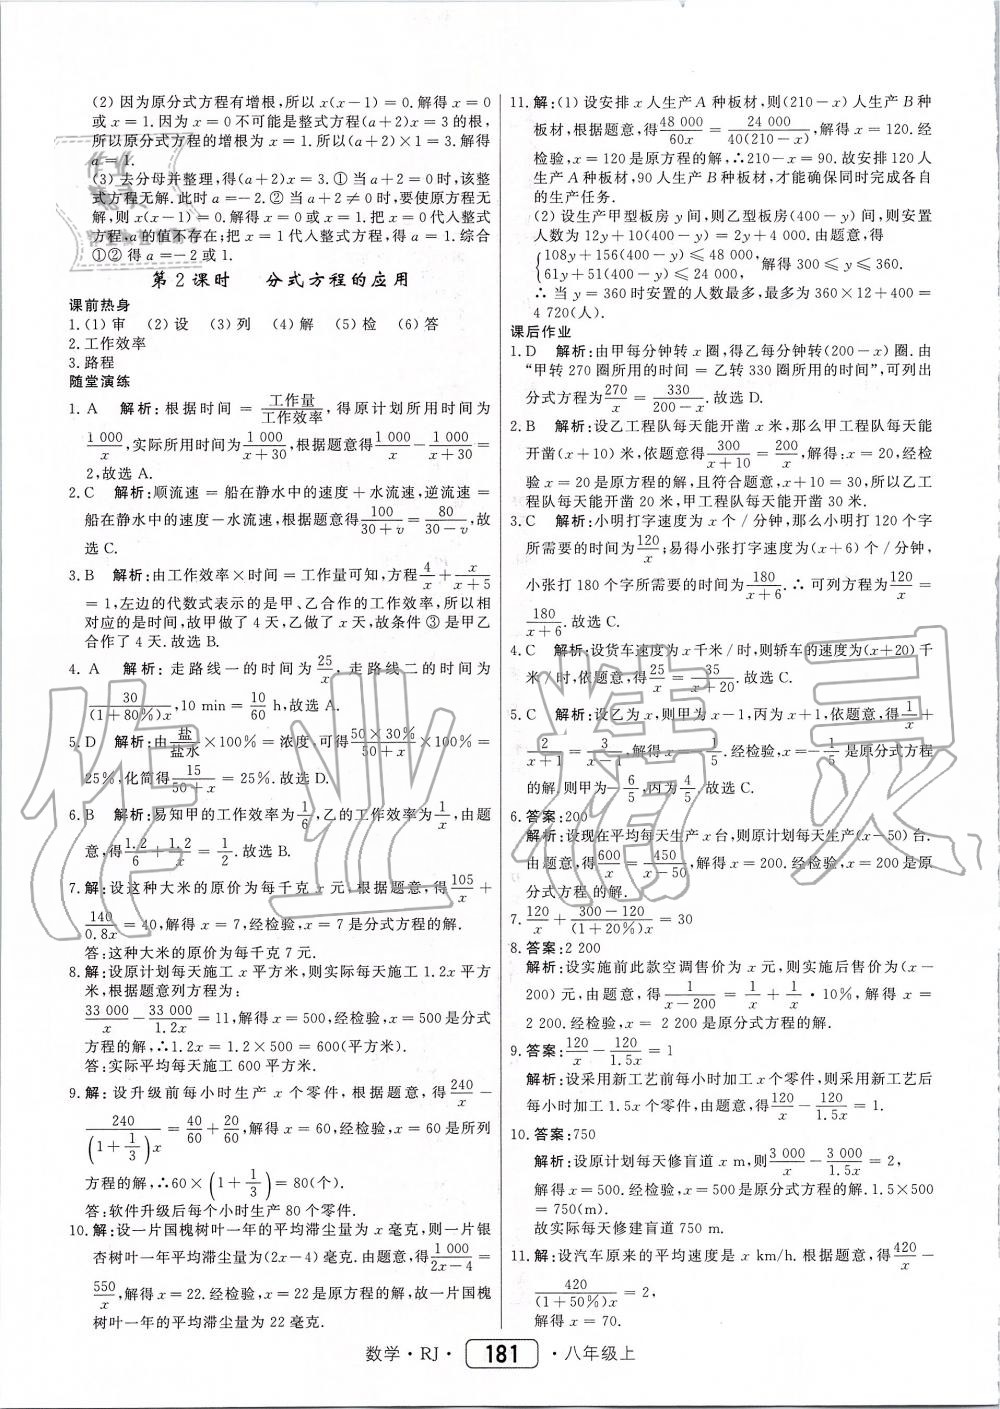 (2) 因为原分式方程有增根,所以 x(x－1)＝0. 解得 x＝0
或 x＝1. 因为 x＝0 不可能是整式方程(a＋2)x＝3 的根,
所以原分式方程的增根为 x＝1. 所以(a＋2)×1＝3. 解得
a＝1.
(3) 去分母并整理,得(a＋2)x＝3. ① 当 a＋2＝0 时,该整
式方程无解. 此时 a＝－2. ② 当 a＋2≠0 时,要使原方程无
解,则 x(x－1)＝0. 解得 x＝0 或 x＝1. 把 x＝0 代入整式
方程,a 的值不存在;把 x＝1 代入整式方程,得 a＝1. 综合
①② 得 a＝－2 或 1.
第 2 课时　分式方程的应用
课前热身
1. (1) 审　(2) 设　(3) 列　(4) 解　(5) 检　(6) 答
2. 工作效率
3. 路程
随堂演练
1. A　解析:根据时间＝工作量/工作效率,得原计划所用时间为
1 000/x,实际所用时间为1 000/(x＋30),根据题意得1 000/x－1 000/(x＋30)＝
2,故选 A.
2. C　解析:顺流速＝船在静水中的速度＋水流速,逆流速＝
船在静水中的速度－水流速,根据题意得100/(30＋v)＝80/(30－v),故
选 C.
3. B　解析:由工作效率×时间＝工作量可知,方程4/x＋x/(x＋5)
＝1,左边的代数式表示的是甲、乙合作的工作效率,所以相
对应的是时间,故甲做了 4 天,乙做了 x 天,故条件 ③ 是甲乙
合作了 4 天. 故选 B.
4. A　解析:走路线一的时间为25/x,走路线二的时间为
30/((1＋80%)x),10 min＝10/60 h,故选 A.
5. D　解析:由盐/盐水×100%＝浓度,可得(50×30%)/(50＋x)×100%＝
25%,化简得15/(50＋x)＝25%. 故选 D.
6. B　解析:易知甲的工作效率为1/6,乙的工作效率为1/x,由题
意,得1.2/6＋1.2/x＝1/2. 故选 B.
7. 解:设这种大米的原价为每千克 x 元. 根据题意,得105/x＋
140/0.8x＝40,解得 x＝7,经检验,x＝7 是分式方程的解.
答:这种大米的原价为每千克 7 元.
8. 解:设原计划每天施工 x 平方米,则实际每天施工 1.2x 平方
米,根据题意列方程为:
33 000/x－33 000/1.2x＝11,解得 x＝500,经检验,x＝500 是分式
方程的解,∴1.2x＝1.2×500＝600(平方米).
答:实际平均每天施工 600 平方米.
9. 解:设升级前每小时生产 x 个零件,根据题意,得240/x－
240/((1＋1/3)x)＝40/60＋20/60,解得 x＝60,经检验,x＝60 是所列
方程的解,∴60×(1＋1/3)＝80(个).
答:软件升级后每个小时生产 80 个零件.
10. 解:设一片国槐树叶一年的平均滞尘量为 x 毫克,则一片银
杏树叶一年平均滞尘量为(2x－4) 毫克. 由题意,得1 000/(2x－4)＝
550/x,解得 x＝22. 经检验,x＝22 是原方程的解,故一片国槐
树叶一年的平均滞尘量为 22 毫克.
11. 解:(1) 设安排 x 人生产 A 种板材,则(210－x) 人生产 B 种
板材,根据题意,得48 000/60x＝24 000/(40(210－x)),解得 x＝120. 经
检验,x＝120 是原方程的解,∴210－x＝90. 故安排 120 人
生产 A 种板材,90 人生产 B 种板材,才能确保同时完成各自
的生产任务.
(2) 设生产甲型板房 y 间,则乙型板房(400－y) 间,则安置
人数为 12y＋10(400－y)＝2y＋4 000. 由题意,得
{108y＋156(400－y)≤48 000,
61y＋51(400－y)≤24 000, 解得 300≤y≤360.
∴ 当 y＝360 时安置的人数最多,最多为 360×12＋400＝
4 720(人).
课后作业
1. D　解析:由甲每分钟转 x 圈,得乙每分钟转(200－x) 圈. 由
“甲转 270 圈所用的时间＝乙转 330 圈所用的时间”,可列出
分式方程为270/x＝330/(200－x). 故选 D.
2. B　解析:设乙工程队每天能开凿 x 米,那么甲工程队每天能
开凿(x＋10) 米,依题意得300/(x＋10)＝200/x,解得:x＝20,经检
验 x＝20 是原方程的解,且符合题意,x＋10＝30,所以乙工
程队每天能开凿 20 米,甲工程队每天能开凿 30 米.
3. C　解析:小明打字速度为 x 个/分钟,那么小明打 120 个字
所需要的时间为120/x;易得小张打字速度为(x＋6) 个/分钟,
小张打 180 个字所需要的时间为180/(x＋6). ∴ 可列方程为120/x＝
180/(x＋6). 故选 C.
4. C　解析:设货车速度为 x 千米/时,则轿车的速度为(x＋20)千
米/时,依题意,得25/x＝35/(x＋20). 故选 C.
5. C　解析:设乙为 x,则甲为 x－1,丙为 x＋1,依题意,得1/x＋
2/(x＋1)＝3/(x－1),解得 x＝－1/5. 经检验,x＝－1/5 是原分式方程
的解,则甲为－6/5,丙为4/5. 故选 C.
6. 答案:200
解析:设现在平均每天生产 x 台,则原计划每天生产(x－50) 台.
由题意,得600/x＝450/(x－50),解得 x＝200. 经检验,x＝200 是原
分式方程的解.
7. 120/x＋(300－120)/((1＋20%)x)＝30
8. 答案:2 200
解析:设实施前此款空调售价为 x 元,则实施后售价为(x－
200) 元,由题意,得1/(x－200)＝1/x＋1/x·10%,解得 x＝
2 200. 经检验,x＝2 200 是原分式方程的解.
9. 答案:120/x－120/1.5x＝1
解析:设采用新工艺前每小时加工 x 个零件,则采用新工艺后
每小时加工 1.5x 个零件,由题意,得120/x－120/1.5x＝1.
10. 答案:750
解析:设原计划每天修盲道 x m,则3 000/x－3 000/1.5x＝2,
解得 x＝500. 经检验,x＝500 是原分式方程的解. 1.5×500
＝750(m).
故实际每天修建盲道 750 m.
11. 解:设汽车原来的平均速度是 x km/h. 根据题意,得420/x－
420/((1＋50%)x)＝2,
解得 x＝70.
数学·RJ· 181 ·八年级上
作业精灵